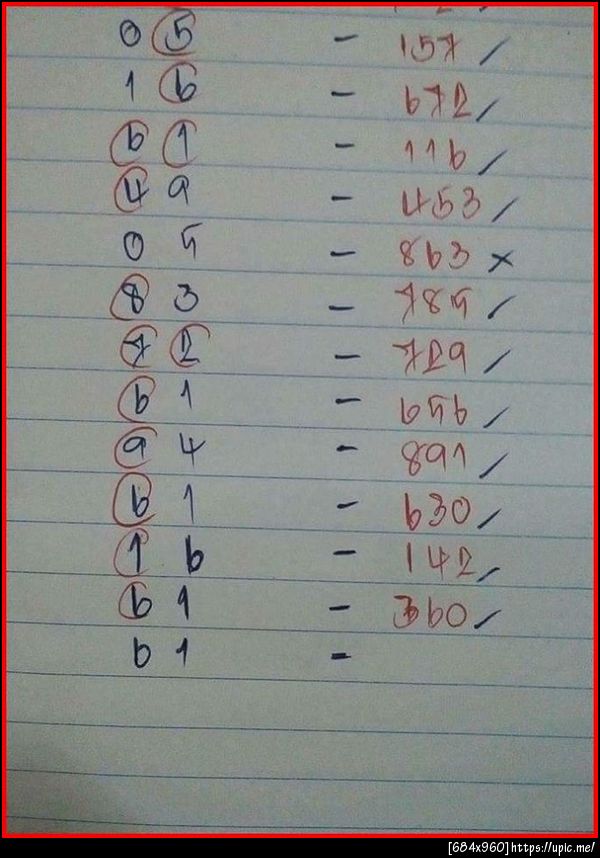 0 5 - 157 /
1 6 - 672 /
6 1 - 116 /
4 9 - 453 /
0 5 - 863 ×
8 3 - 785 /
7 2 - 729 /
6 1 - 656 /
9 4 - 891 /
6 1 - 630 /
1 6 - 142 /
6 1 - 360 /
6 1 -
[684x960]https://upic.me/